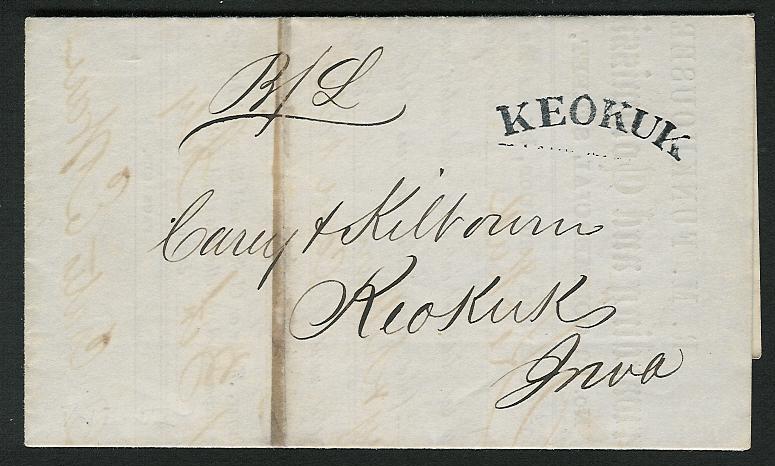 B/L
KEOKUK
Carey & Kilbourn
Keokuk
Iowa